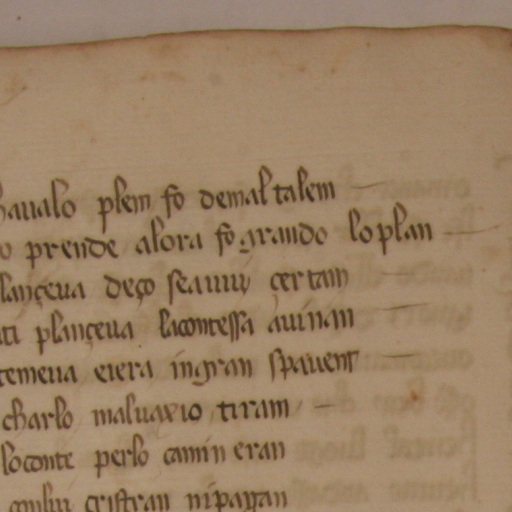 havalo plem fo demal talem
o prende alora fo grando lo plan
lançeva deço seauuy certam
ti plançeva la contessa avinan
temeva eiera in gran spavent
charlo malvaxio tiram
lo conte per lo camin eran
cristian ni pagan